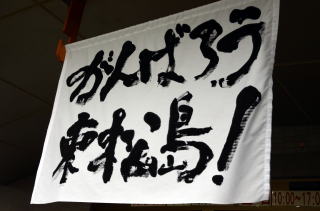 がんばろう
東松島!
10:00~17:0